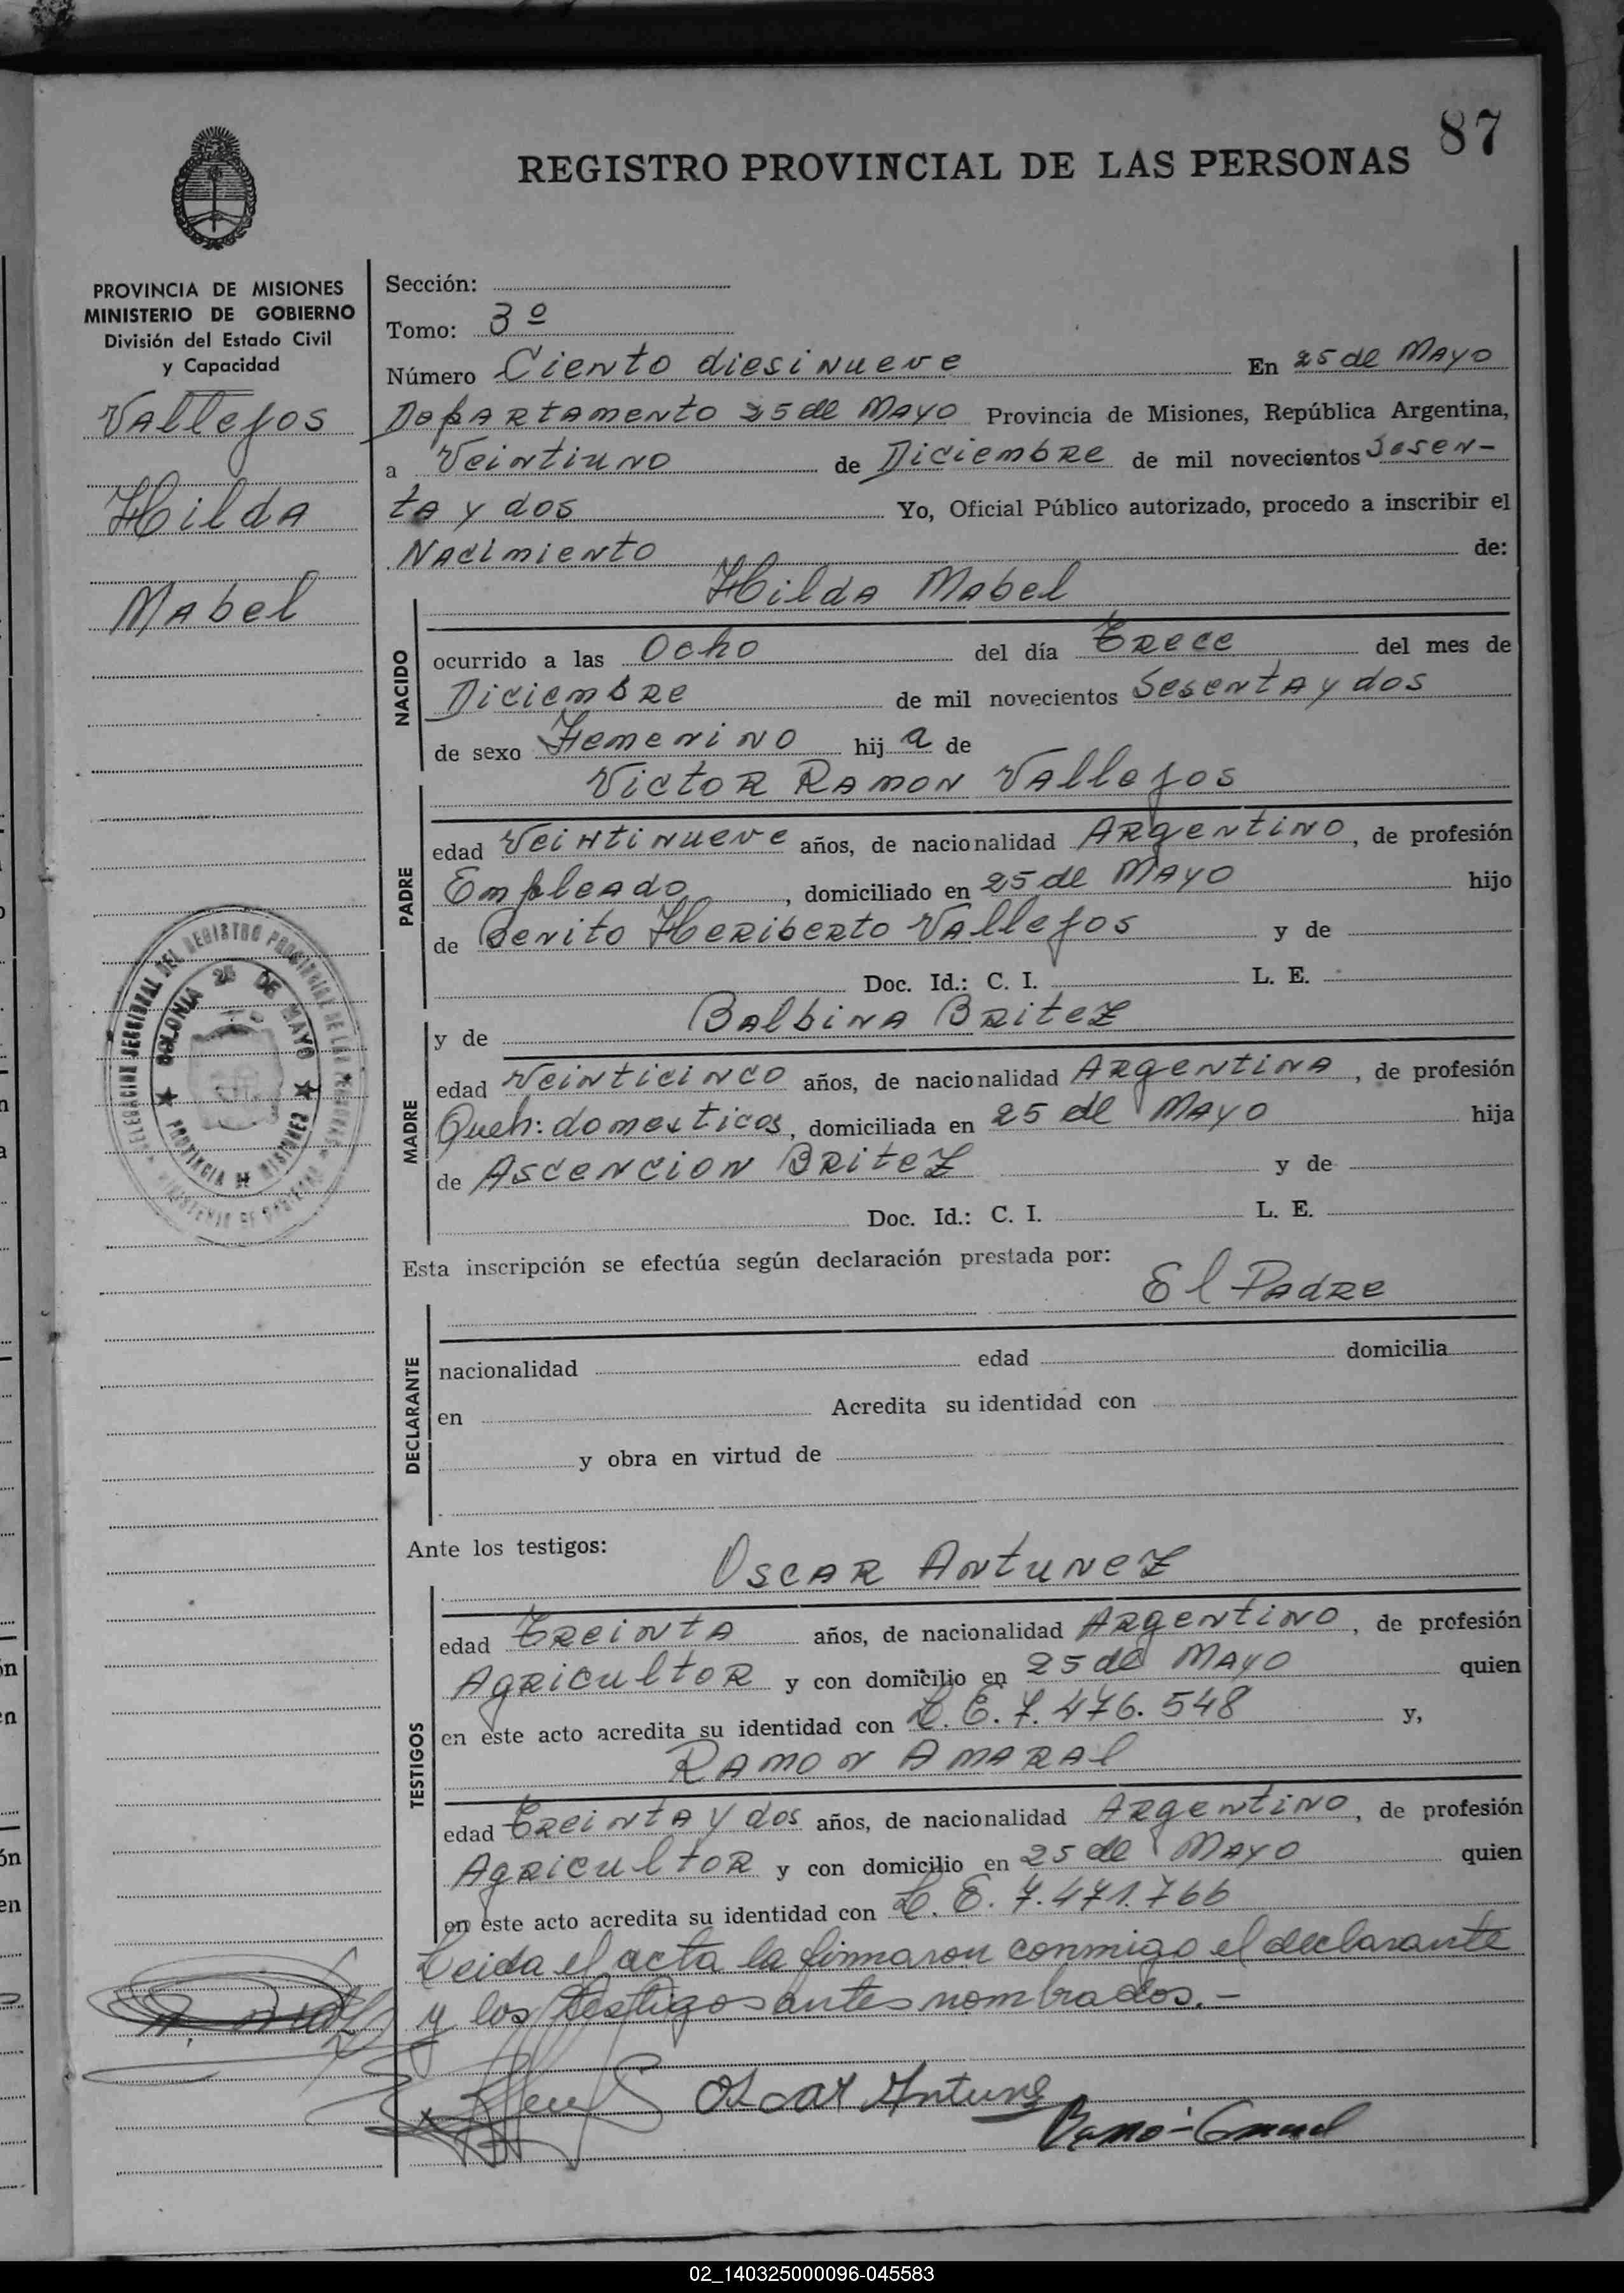 87
REGISTRO PROVINCIAL DE LAS PERSONAS
PROVINCIA DE MISIONES
MINISTERIO DE GOBIERNO
División del Estado Civil
y Capacidad
Vallejos
Hilda
Mabel
Sección:
Tomo: 3º
Número Ciento diesinueve En 25 de Mayo
Departamento 25 de Mayo Provincia de Misiones, República Argentina,
a Veintiuno de Diciembre de mil novecientos Sesen-
ta y dos Yo, Oficial Público autorizado, procedo a inscribir el
Nacimiento de:
Hilda Mabel
NACIDO
ocurrido a las Ocho del día Trece del mes de
Diciembre de mil novecientos Sesenta y dos
de sexo Femenino hij a de
Victor Ramon Vallejos
PADRE
edad Veintinueve años, de nacionalidad Argentino, de profesión
Empleado, domiciliado en 25 de Mayo hijo
de Benito Heriberto Vallejos y de
Doc. Id.: C. I. L. E.
MADRE
y de Balbina Britez
edad Veinticinco años, de nacionalidad Argentina, de profesión
Queh: domesticos, domiciliada en 25 de Mayo hija
de Ascencion Britez y de
Doc. Id.: C. I. L. E.
Esta inscripción se efectúa según declaración prestada por:
El Padre
DECLARANTE
nacionalidad edad domicilia
en Acredita su identidad con
y obra en virtud de
Ante los testigos:
Oscar Antunez
TESTIGOS
edad Treinta años, de nacionalidad Argentino, de profesión
Agricultor y con domicilio en 25 de Mayo quien
en este acto acredita su identidad con L. E. 7.476.548 y,
Ramon Amaral
edad Treinta y dos años, de nacionalidad Argentino, de profesión
Agricultor y con domicilio en 25 de Mayo quien
en este acto acredita su identidad con L. E. 7.471.766
Leida el acta la firmaron conmigo el declarante
y los testigos antes nombrados.-
Oscar Antunez
COLONIA 25 DE MAYO
PROVINCIA DE MISIONES
02_140325000096-045583